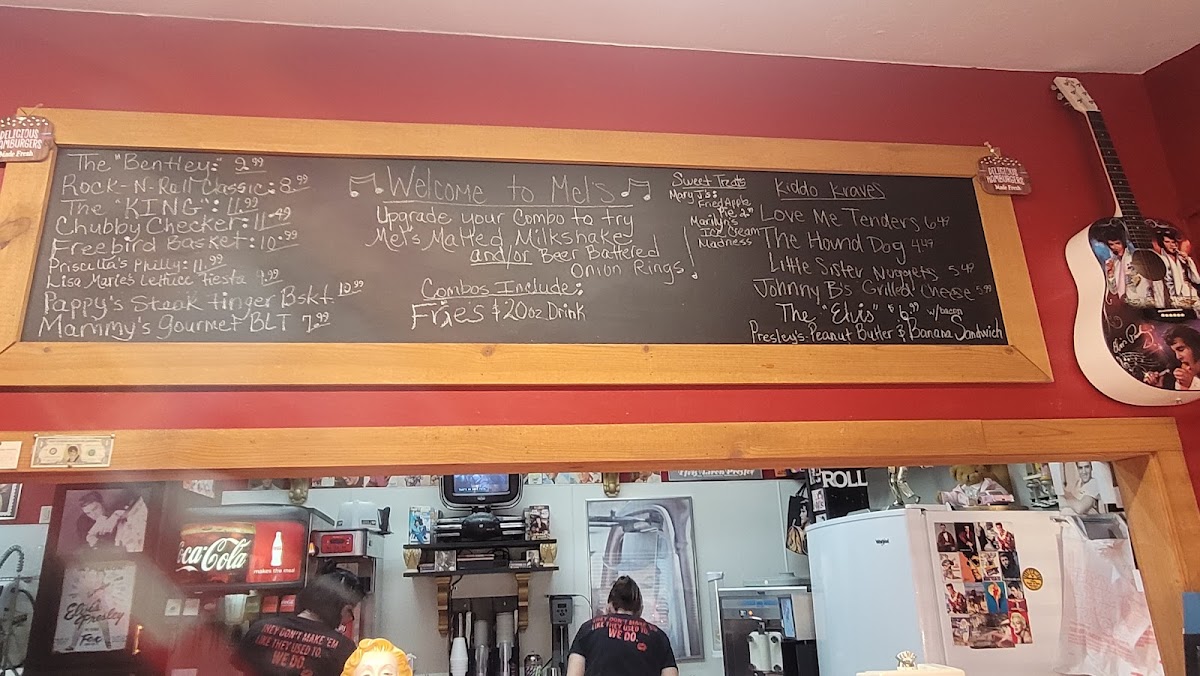 DELICIOUS
HAMBURGERS
Made Fresh
The "Bentley:" 9.99
Rock-N-Roll Classic: 8.99
The "KING": 11.99
Chubby Checker: 11.49
Freebird Basket: 10.99
Priscilla's Philly: 11.99
Lisa Marie's Lettuce Fiesta 9.99
Pappy's Steak finger Bskt 10.99
Mammy's Gourmet BLT 7.99
Welcome to Mel's
Upgrade your Combo to try
Mel's Malted Milkshake
and/or Beer Battered
Onion Rings
Combos Include:
Fries & 20oz Drink
Sweet Treats
Mary J's:
Fried Apple
Pie 2.99
Marilyn's
Ice Cream
Madness
Kiddo Kraves
Love Me Tenders 6.49
The Hound Dog 4.49
Little Sister Nuggets 5.49
Johnny B's Grilled Cheese 5.99
The "Elvis" $6.99 w/bacon
Presley's Peanut Butter & Banana Sandwich
DELICIOUS
HAMBURGERS
Made Fresh
Coca-Cola
makes the meal
Elvis
Presley
ROLL
Whirlpool
THEY DON'T MAKE 'EM
LIKE THEY USED TO.
WE DO.
THEY DON'T MAKE 'EM
LIKE THEY USED TO.
WE DO.